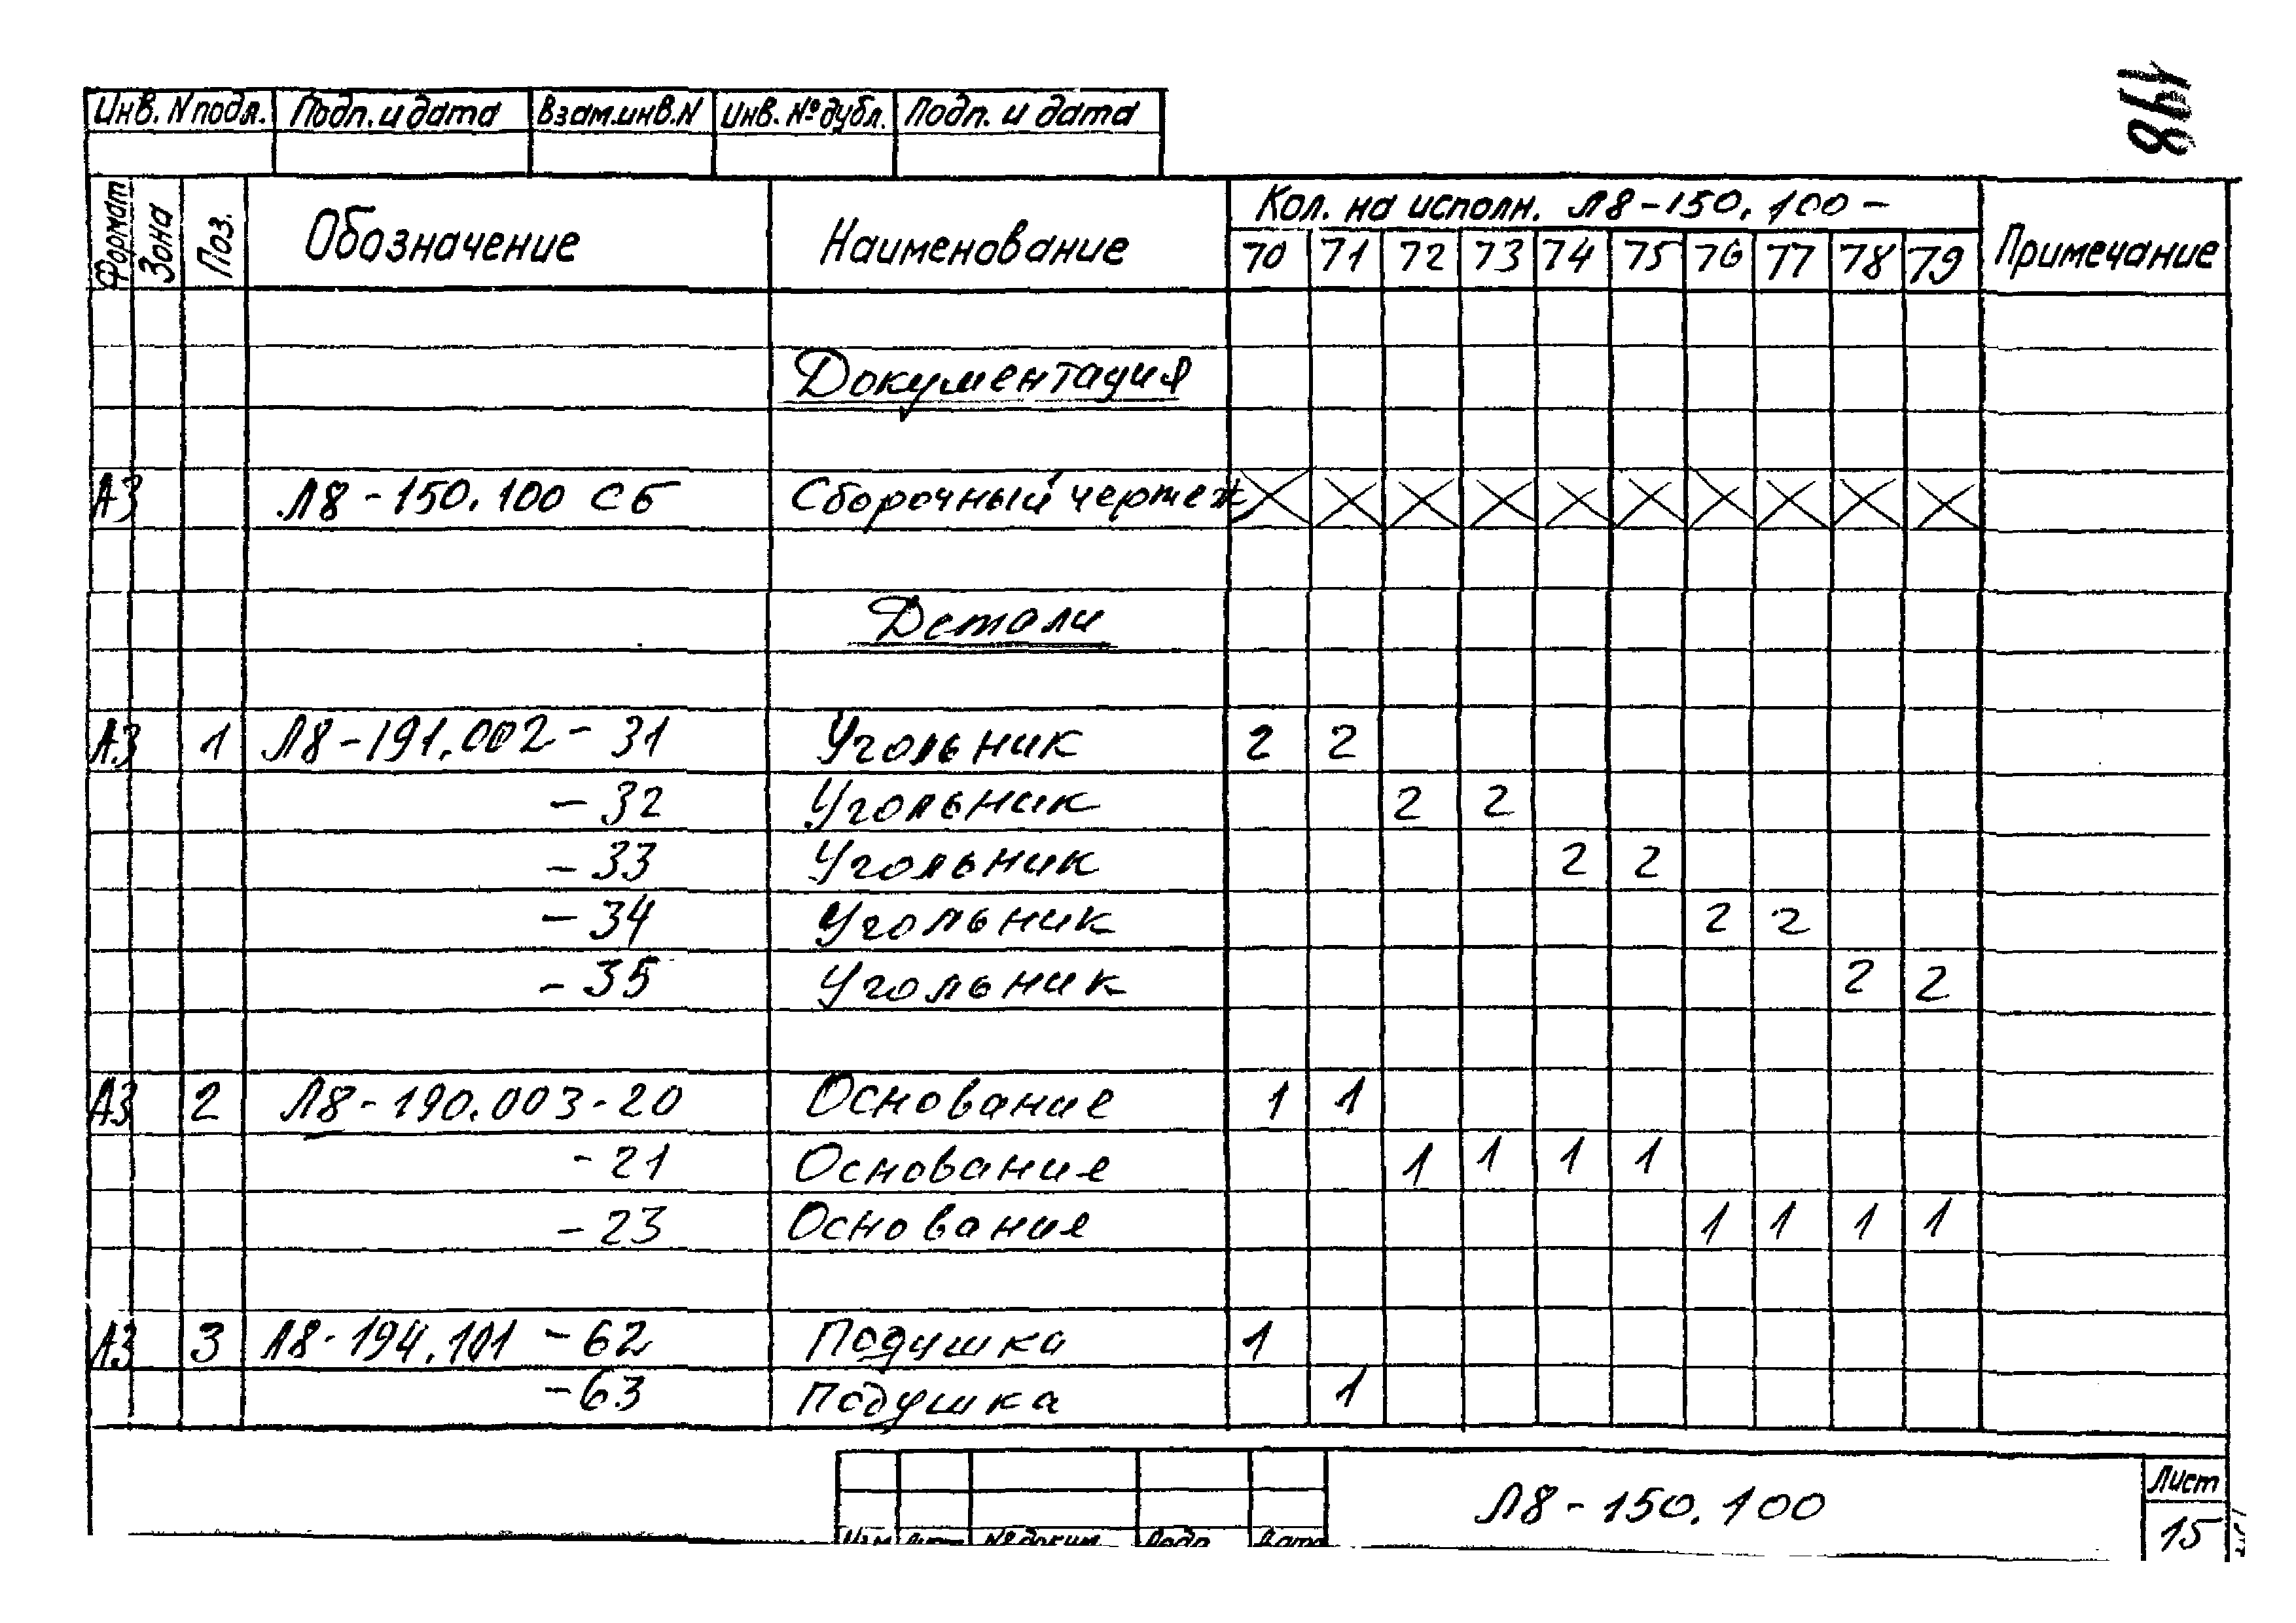 Инв. N подл. Подп. и дата Взам.инв.N Инв. №дубл. Подп. и дата
Формат Зона Поз. Обозначение Наименование Кол. на исполн. Л8-150.100- Примечание
70 71 72 73 74 75 76 77 78 79
Документация
А3 Л8-150.100 СБ Сборочный чертеж
Детали
А3 1 Л8-191.002-31 Угольник 2 2
-32 Угольник 2 2
-33 Угольник 2 2
-34 Угольник 2 2
-35 Угольник 2 2
А3 2 Л8-190.003-20 Основание 1 1
-21 Основание 1 1 1 1
-23 Основание 1 1 1 1
А3 3 Л8-194.101-62 Подушка 1
-63 Подушка 1
Изм Лист № докум. Подп. Дата
Л8-150.100
Лист
15